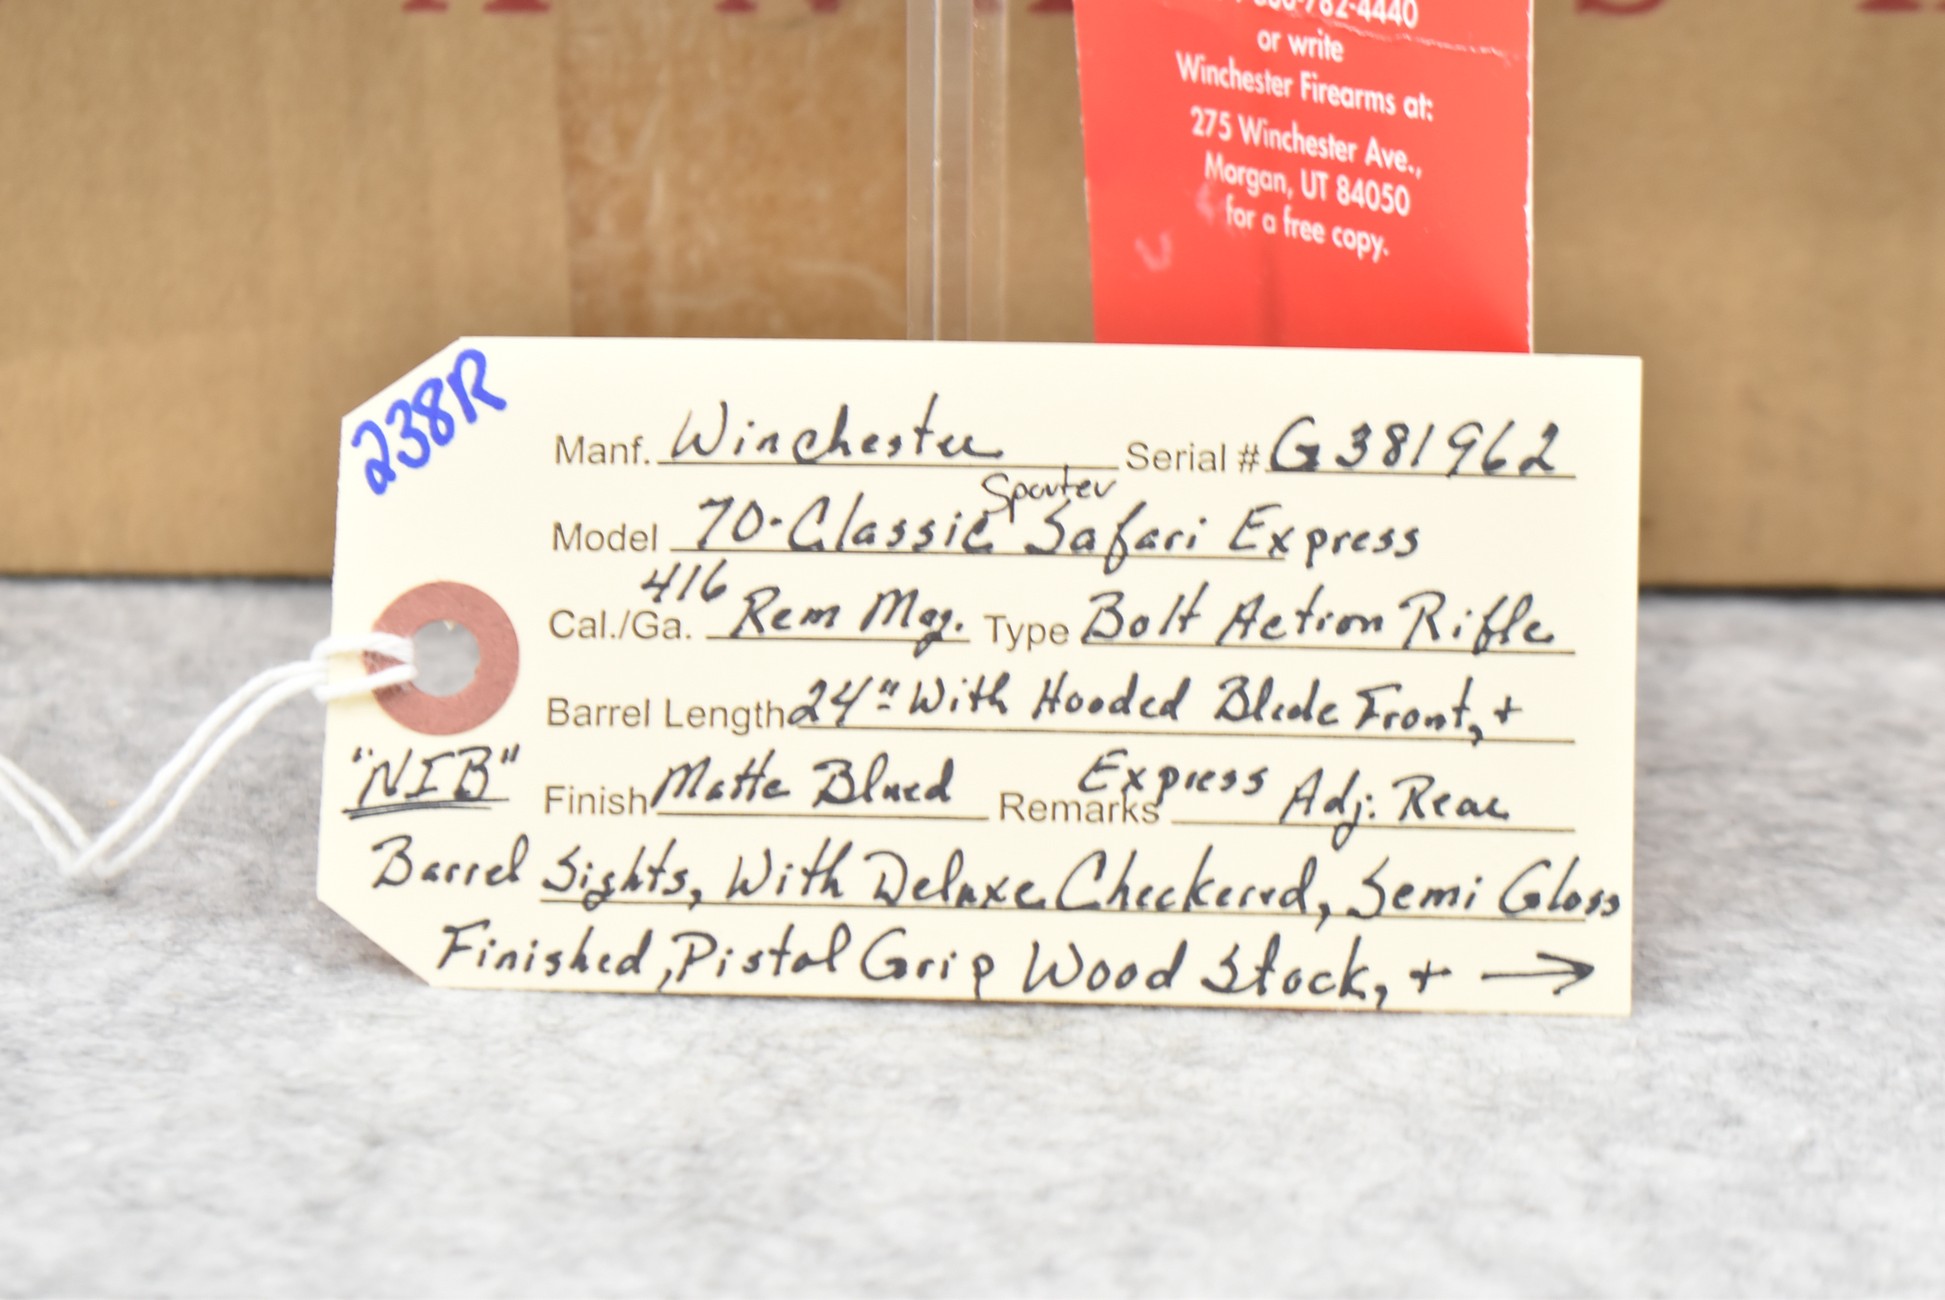 782-4440
or write
Winchester Firearms at:
275 Winchester Ave.,
Morgan, UT 84050
for a free copy.
238R
Manf. Winchester Serial # G381962
Sporter
Model 70-Classic Safari Express
416
Cal./Ga. Rem Mag. Type Bolt Action Rifle
Barrel Length 24" With Hooded Blade Front, +
"NIB"
Finish Matte Blued Remarks Express Adj. Rear
Barrel Sights, With Deluxe Checkered, Semi Gloss
Finished, Pistol Grip Wood Stock, + →